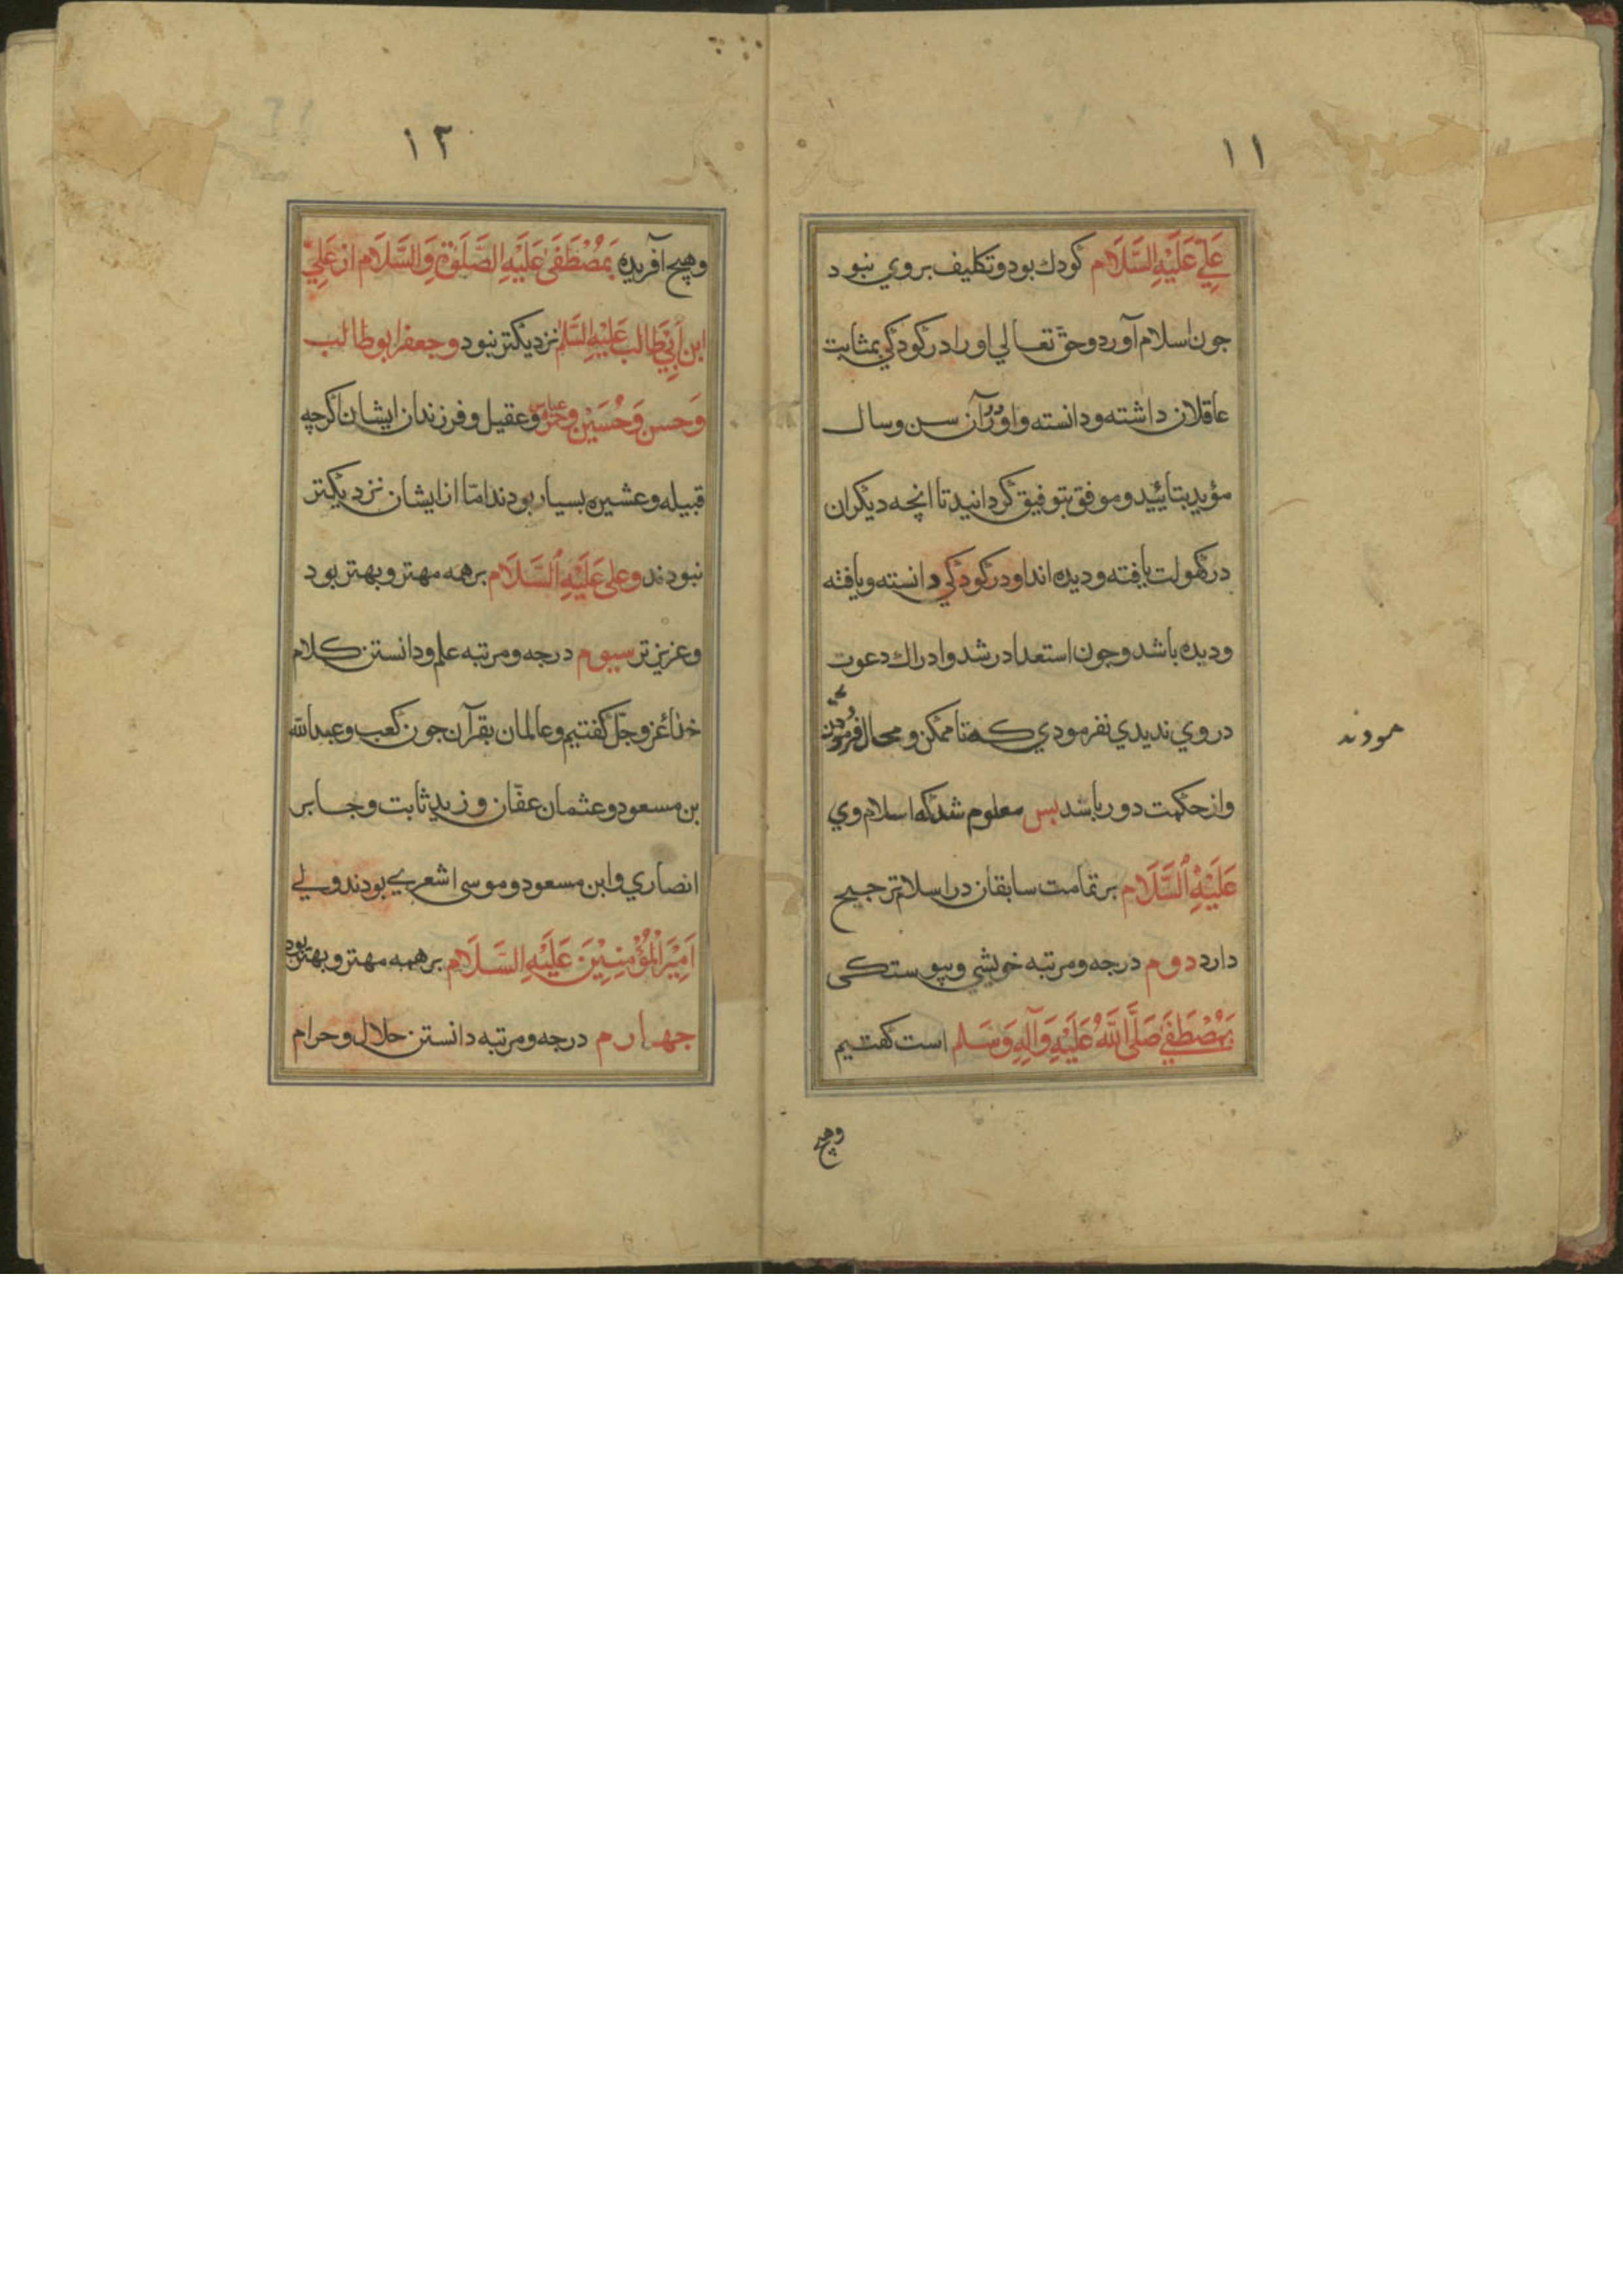 ۱۱
عَلِيّ عَلَيْهِ السَّلَام كودك بود و تكليف بر وي نبود
جون اسلام آورد و حق تعالي او را در كودكي بمثابت
عاقلان داشته و دانسته و او در آن سن و سال
مؤيد بتاييد و موفق بتوفيق كردانيد تا انچه ديكران
در كهولت يافته و ديده اند او در كودكي دانسته و يافته
و ديده باشد و جون استعداد رشد و ادراك دعوت
در وي نديدي نفرمودي كه نا ممكن و محال فرمودن
و از حكمت دور باشد بس معلوم شد كه اسلام وي
عَلَيْهِ ٱلسَّلَام بر تمامت سابقان در اسلام ترجيح
دارد دوم درجه و مرتبه خويشي و پيوستكى
بَمُصْطَفَى صَلَّى اللَّهُ عَلَيْهِ وَآلِهِ وَسَلم است كفتيم
وهيچ
۱۲
وهيچ آفريده بَمُصْطَفَى عَلَيْهِ الصَّلَوٰة وَالسَّلَام از عَلِيّ
ابن اَبيطَالب عَلَيْهِ السَّلم نزديكتر نبود و جعفر ابو طالب
وَحسن وَحُسَيْن وحمزه عباس و عقيل و فرزندان ايشان اكرچه
قبيله و عشيره بسيار بودند امّا از ايشان نزديكتر
نبودند و على عَلَيْهِ ٱلسَّلَام بر همه مهتر و بهتر بود
و عزيزتر سيوم درجه و مرتبه علم و دانستن كلام
خداعزوجل كفتيم و عالمان بقرآن جون كعب و عبدالله
بن مسعود و عثمان عفّان و زيد ثابت و جابر
انصاري و ابن مسعود و موسى اشعري بودند ولي
اَمِيْرَالْمُؤْمِنِيْنَ عَلَيْهِ السَّلَام بر همه مهتر و بهتر بود
جهارم درجه و مرتبه دانستن حلال و حرام